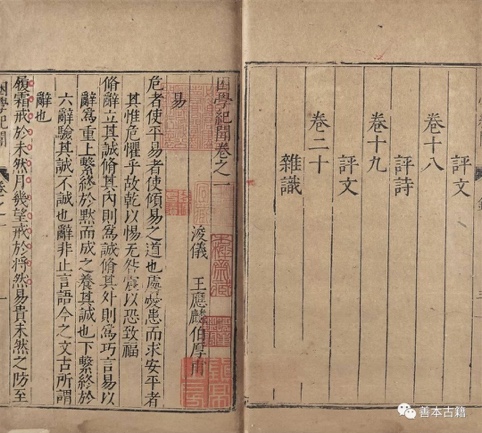 評文
卷十八
評詩
卷十九
評文
卷二十
雜識
困學紀聞卷之一
浚儀 王應麟伯厚甫
易
危者使平易者使傾易之道也處憂患而求安平者
其惟危懼乎故乾以惕无咎震以恐致福
脩辭立其誠脩其內則爲誠脩其外則爲巧言易以
辭爲重上繫終於默而成之養其誠也下繫終於
六辭驗其誠不誠也辭非止言語今之文古所謂
辭也
履霜戒於未然月幾望戒於將然易貴未然之防至
困學紀聞
卷之一
一
善本古籍